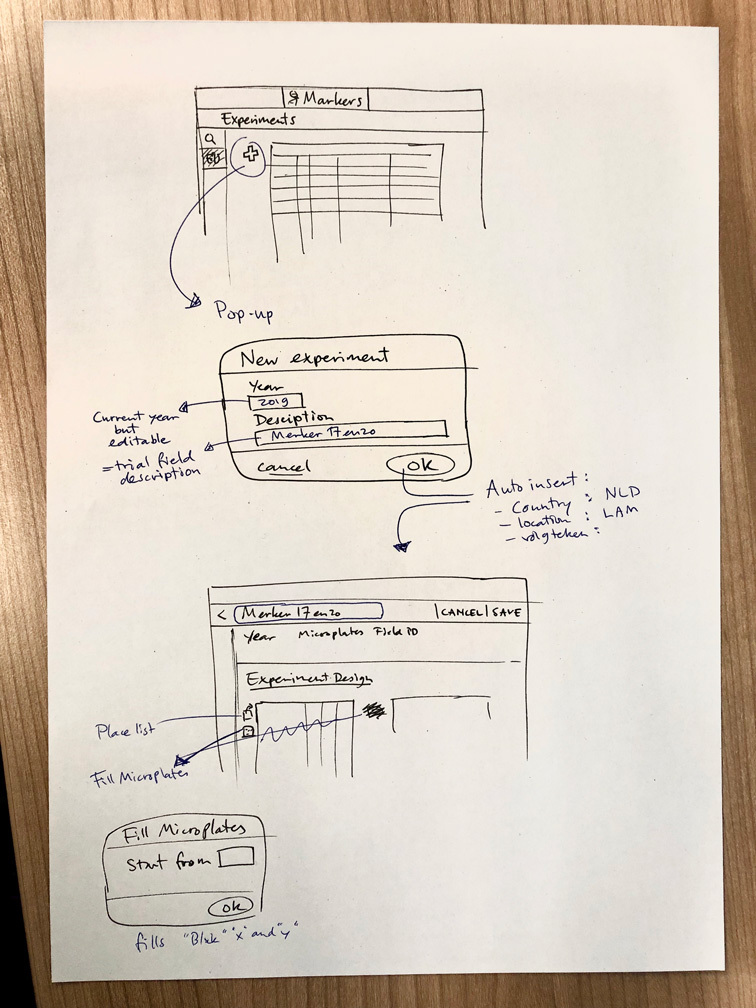 Markers
Experiments
Pop-up
New experiment
Year
2019
Desciption
Merker 17 en 20
cancel
OK
Current year
but
editable
=trial field
description
Auto insert :
- Country : NLD
- location : LAM
- volgteken :
< Merker 17 en 20 |CANCEL|SAVE
Year Microplates Field ID
Experiment Design
Place list
Fill Microplates
Fill Microplates
Start from
OK
fills "Block" "x" and "y"